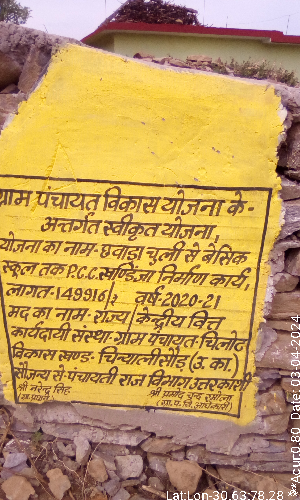 ग्राम पंचायत विकास योजना के-
अन्तर्गत स्वीकृत योजना,
योजना का नाम- छवाड़ा चुली से बेसिक
स्कूल तक P.C.C. खण्डिंजा निर्माण कार्य,
लागत- 149916/₹ वर्ष-2020-21
मद का नाम- राज्य/केन्द्रीय वित्त
कार्यदायी संस्था- ग्राम पंचायत- चिलोट
विकास खण्ड- चिन्यालीसौड़ (उ. का.)
सौजन्य से- पंचायती राज विभाग उत्तरकाशी
श्री नरेन्द्र सिंह श्री प्रमोद चन्द्र
(ग्रा. प्रधान) (ग्रा. प. वि. अधिकारी)
Acur:0.80 Date: 03-04-2024
Lat:Lon-30.63:78.28